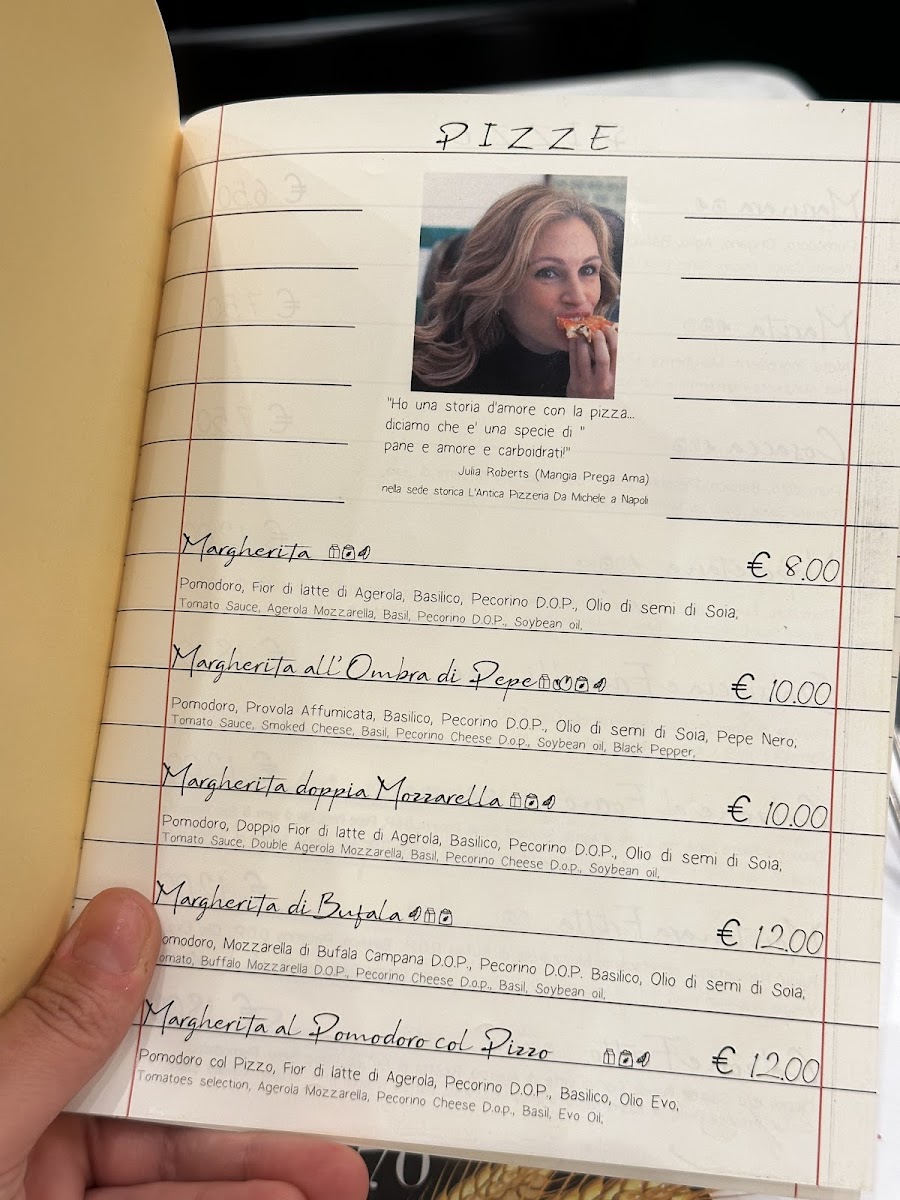 PIZZE
"Ho una storia d'amore con la pizza...
diciamo che e' una specie di "
pane e amore e carboidrati!"
Julia Roberts (Mangia Prega Ama)
nella sede storica L'Antica Pizzeria Da Michele a Napoli
Margherita € 8.00
Pomodoro, Fior di latte di Agerola, Basilico, Pecorino D.O.P., Olio di semi di Soia,
Tomato Sauce, Agerola Mozzarella, Basil, Pecorino D.O.P., Soybean oil,
Margherita all'Ombra di Pepe € 10.00
Pomodoro, Provola Affumicata, Basilico, Pecorino D.O.P., Olio di semi di Soia, Pepe Nero;
Tomato Sauce, Smoked Cheese, Basil, Pecorino Cheese D.o.p., Soybean oil, Black Pepper,
Margherita doppia Mozzarella € 10.00
Pomodoro, Doppio Fior di latte di Agerola, Basilico, Pecorino D.O.P., Olio di semi di Soia,
Tomato Sauce, Double Agerola Mozzarella, Basil, Pecorino Cheese D.o.p., Soybean oil,
Margherita di Bufala € 12.00
omodoro, Mozzarella di Bufala Campana D.O.P., Pecorino D.O.P. Basilico, Olio di semi di Soia,
omato, Buffalo Mozzarella D.O.P., Pecorino Cheese D.o.p., Basil, Soybean oil,
Margherita al Pomodoro col Pizzo € 12.00
Pomodoro col Pizzo, Fior di latte di Agerola, Pecorino D.O.P., Basilico, Olio Evo,
Tomatoes selection, Agerola Mozzarella, Pecorino Cheese D.o.p., Basil, Evo Oil;